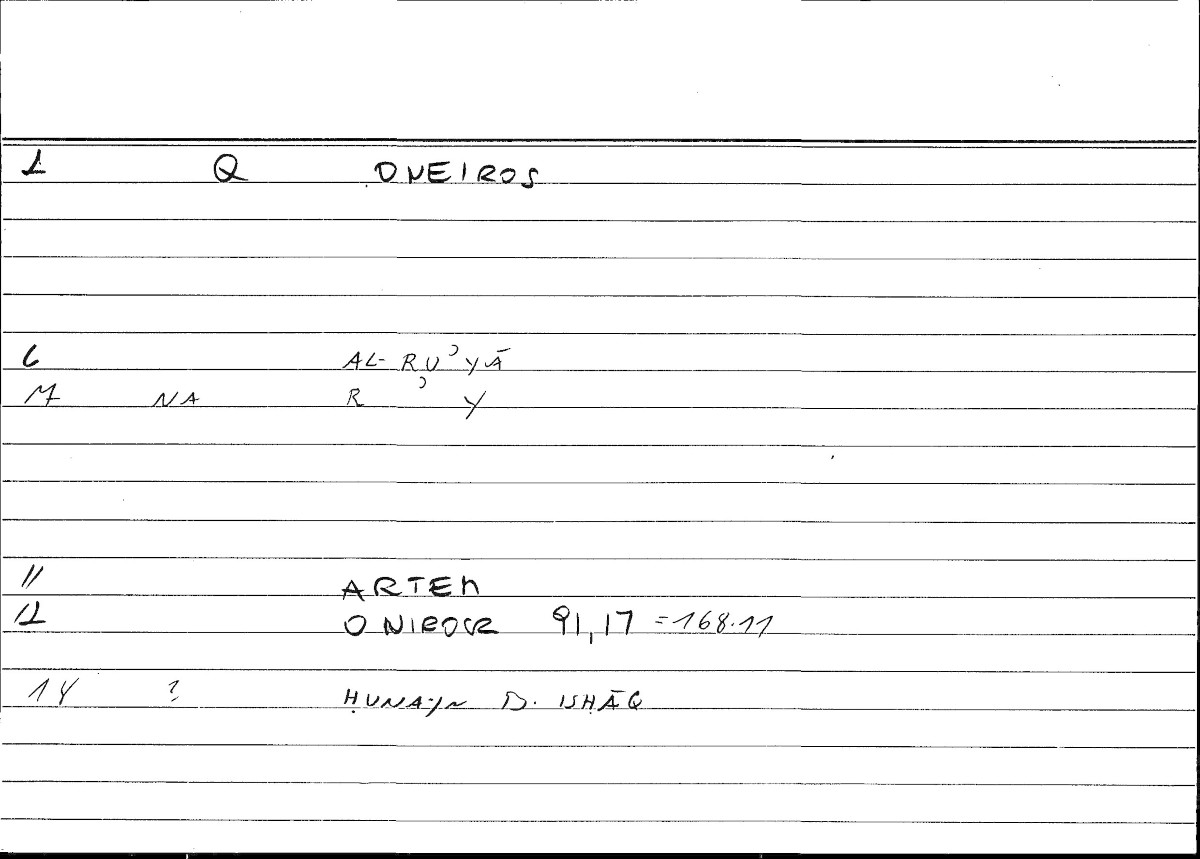 1 Q ONEIROS
6 AL-RUʾYĀ
7 NA R ʾ Y
11 ARTEM
12 ONIROCR 91,17 =168.11
14 ? ḤUNAYN B. ISḤĀQ